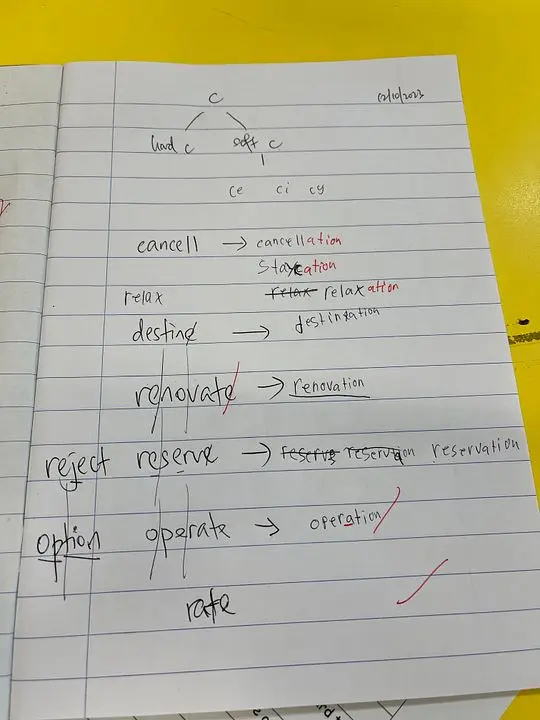 C
12/10/2023
hard c soft c
ce ci cy
cancell → cancellation
staycation
relax relax relaxation
destine → destination
renovate → renovation
reject reserve → reserve reservation reservation
option operate → operation
rate